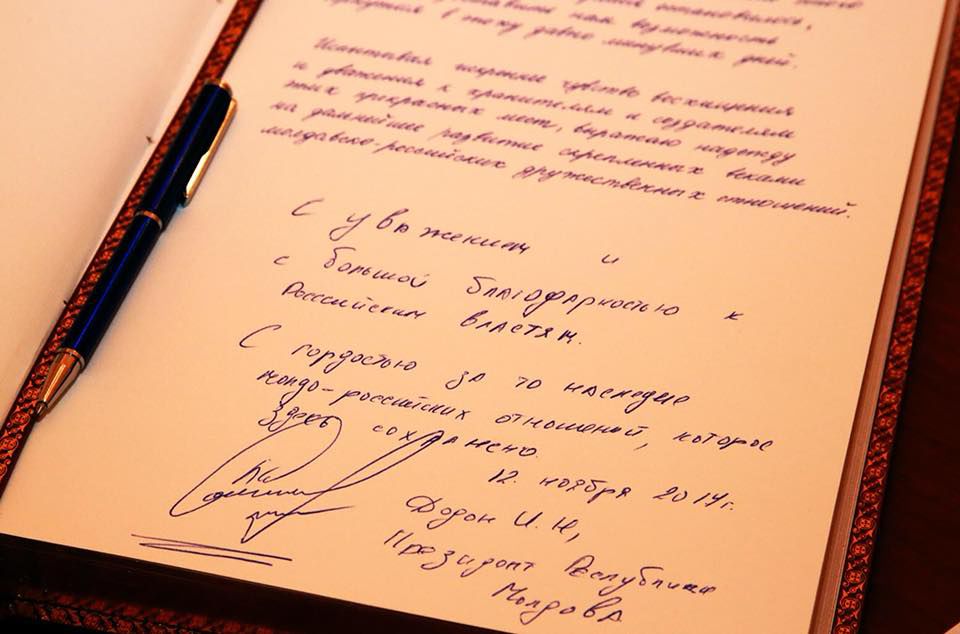 возможность
в эпоху давно минувших дней.
Испытывая искренние чувство восхищения
и уважения к хранителям и создателям
этих прекрасных мест, выражаю надежду
на дальнейшее развитие скрепленных веками
молдавско-российских дружественных отношений.
С уважением и
с большой благодарностью к
Российским властям.
С гордостью за то наследие
молдо-российских отношений, которое
здесь сохранено.
12. ноября 2017г.
Додон И.Н,
Президент Республики
Молдова